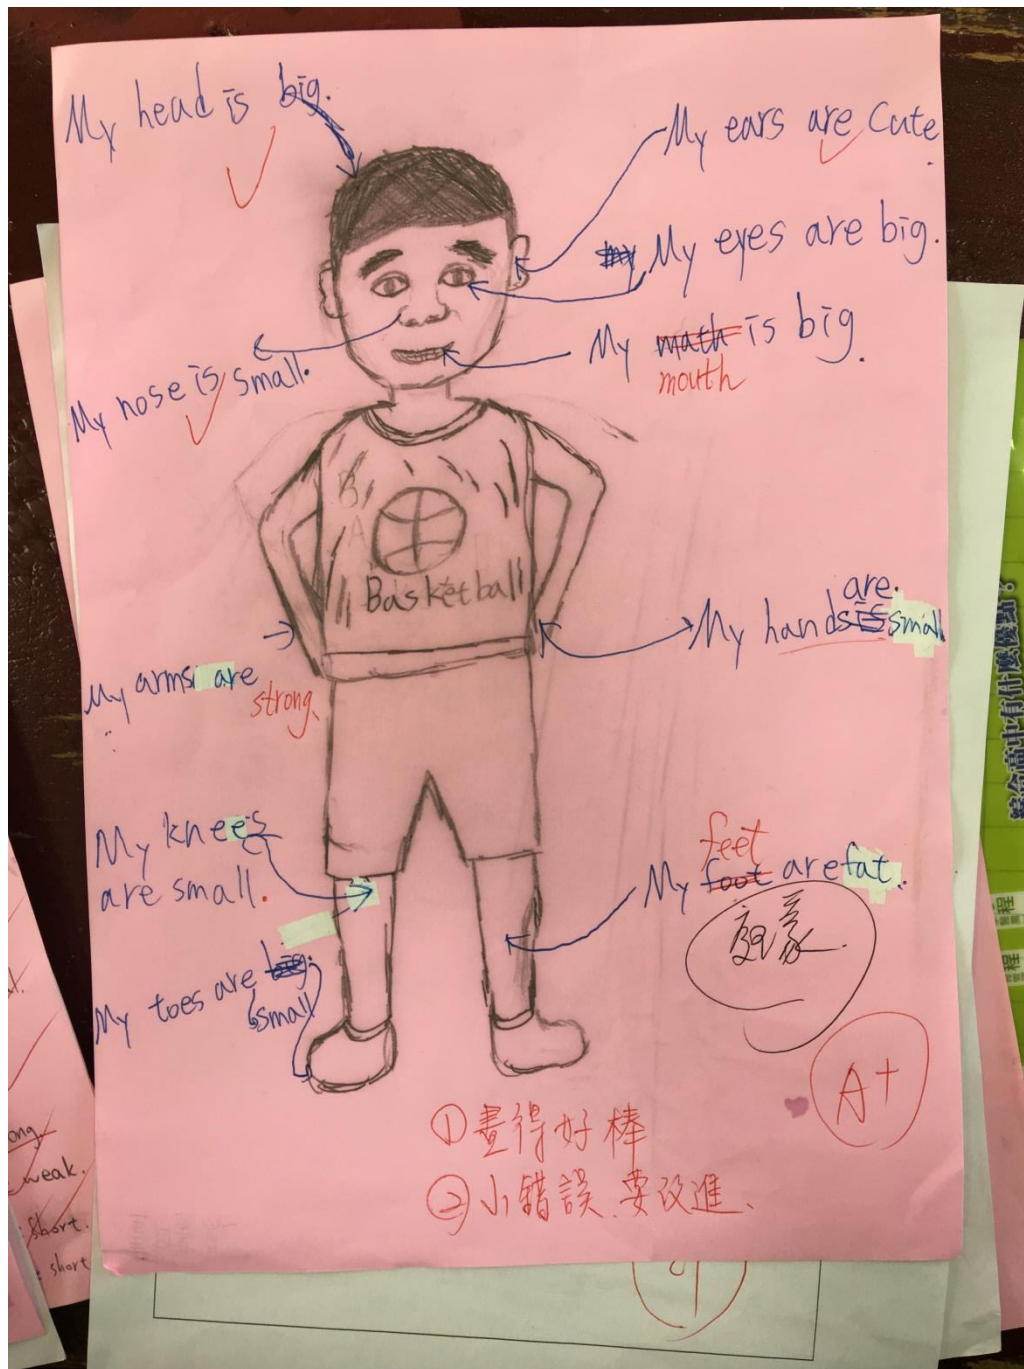 My head is big.
My ears are cute.
My eyes are big.
My math is big.
mouth
My nose is small.
B
A
Basketball
are.
My hands is small
My arms are
strong.
My knees
are small.
feet
My foot are fat.
My toes are big.
small
A+
①畫得好棒
②小錯誤、要改進、
綜合高中有什麼優點?
ong
weak.
short.
short